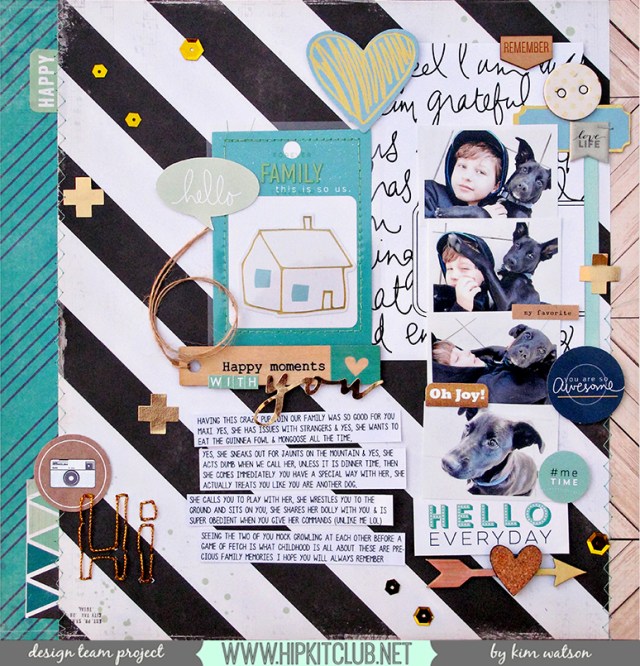 HAPPY
REMEMBER
feel I am
am grateful
has
love
LIFE
FAMILY
this is so us.
hello
my favorite
Happy moments
WITH you
YOU ARE SO
Awesome
Oh Joy!
HAVING THIS CRAZY PUP JOIN OUR FAMILY WAS SO GOOD FOR YOU
MAXI. YES, SHE HAS ISSUES WITH STRANGERS & YES, SHE WANTS TO
EAT THE GUINNEA FOWL & MONGOOSE ALL THE TIME.
YES, SHE SNEAKS OUT FOR JAUNTS ON THE MOUNTAIN & YES, SHE
ACTS DUMB WHEN WE CALL HER, UNLESS IT IS DINNER TIME, THEN
SHE COMES IMMEDIATELY. YOU HAVE A SPECIAL WAY WITH HER, SHE
ACTUALLY TREATS YOU LIKE YOU ARE ANOTHER DOG.
SHE CALLS YOU TO PLAY WITH HER, SHE WRESTLES YOU TO THE
GROUND AND SITS ON YOU, SHE SHARES HER DOLLY WITH YOU & IS
SUPER OBEDIENT WHEN YOU GIVE HER COMMANDS (UNLIKE ME LOL)
SEEING THE TWO OF YOU MOCK GROWLING AT EACH OTHER BEFORE A
GAME OF FETCH IS WHAT CHILDHOOD IS ALL ABOUT. THESE ARE PRE-
CIOUS FAMILY MEMORIES. I HOPE YOU WILL ALWAYS REMEMBER
#me
TIME
HELLO
EVERYDAY
Hi
design team project
WWW.HIPKITCLUB.NET
by kim watson